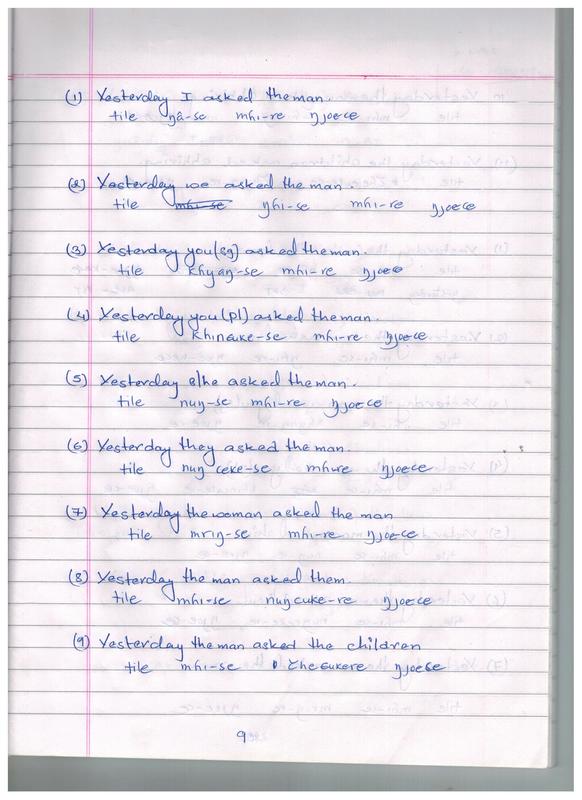 (1) Yesterday I asked the man.
tile ŋâ-se mɦi-re ŋjoece
(2) Yesterday we asked the man.
tile ŋɦi-se mɦi-re ŋjoece
(3) Yesterday you(sg) asked the man.
tile khyaŋ-se mɦi-re ŋjoce
(4) Yesterday you(pl) asked the man.
tile khincuke-se mɦi-re ŋjoece
(5) Yesterday s/he asked the man.
tile nuŋ-se mɦi-re ŋjoece
(6) Yesterday they asked the man.
tile nuŋ ceke-se mɦi-re ŋjoece
(7) Yesterday the woman asked the man
tile mriŋ-se mɦi-re ŋjoece
(8) Yesterday the man asked them.
tile mɦi-se nuŋcuke-re ŋjoece
(9) Yesterday the man asked the children
tile mɦi-se ŋjoece
9